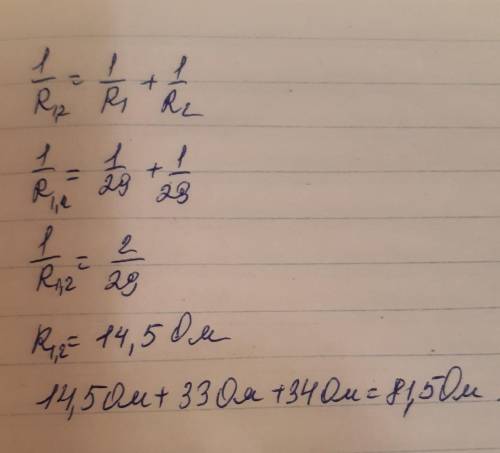 1/R1,2 = 1/R1 + 1/R2
1/R1,2 = 1/29 + 1/29
1/R1,2 = 2/29
R1,2 = 14,5 Ом
14,5 Ом + 33 Ом + 34 Ом = 81,5 Ом.